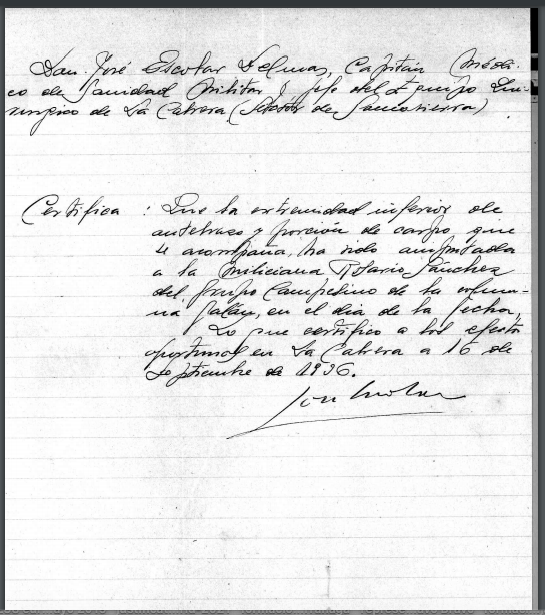 Don José Escobar Delmas, Capitán Médi-
co de Sanidad Militar y jefe del Equipo Qui-
rúrgico de La Cabrera (Sector de Somosierra)
Certifica : Que la extremidad inferior de
antebrazo y porción de carpo que
se acompaña, ha sido amputada
a la miliciana Rosario Sánchez
del Grupo Campesino de la colum-
na Galán, en el día de la fecha,
Lo que certifico a los efectos
oportunos en La Cabrera a 16 de
Septiembre de 1936.